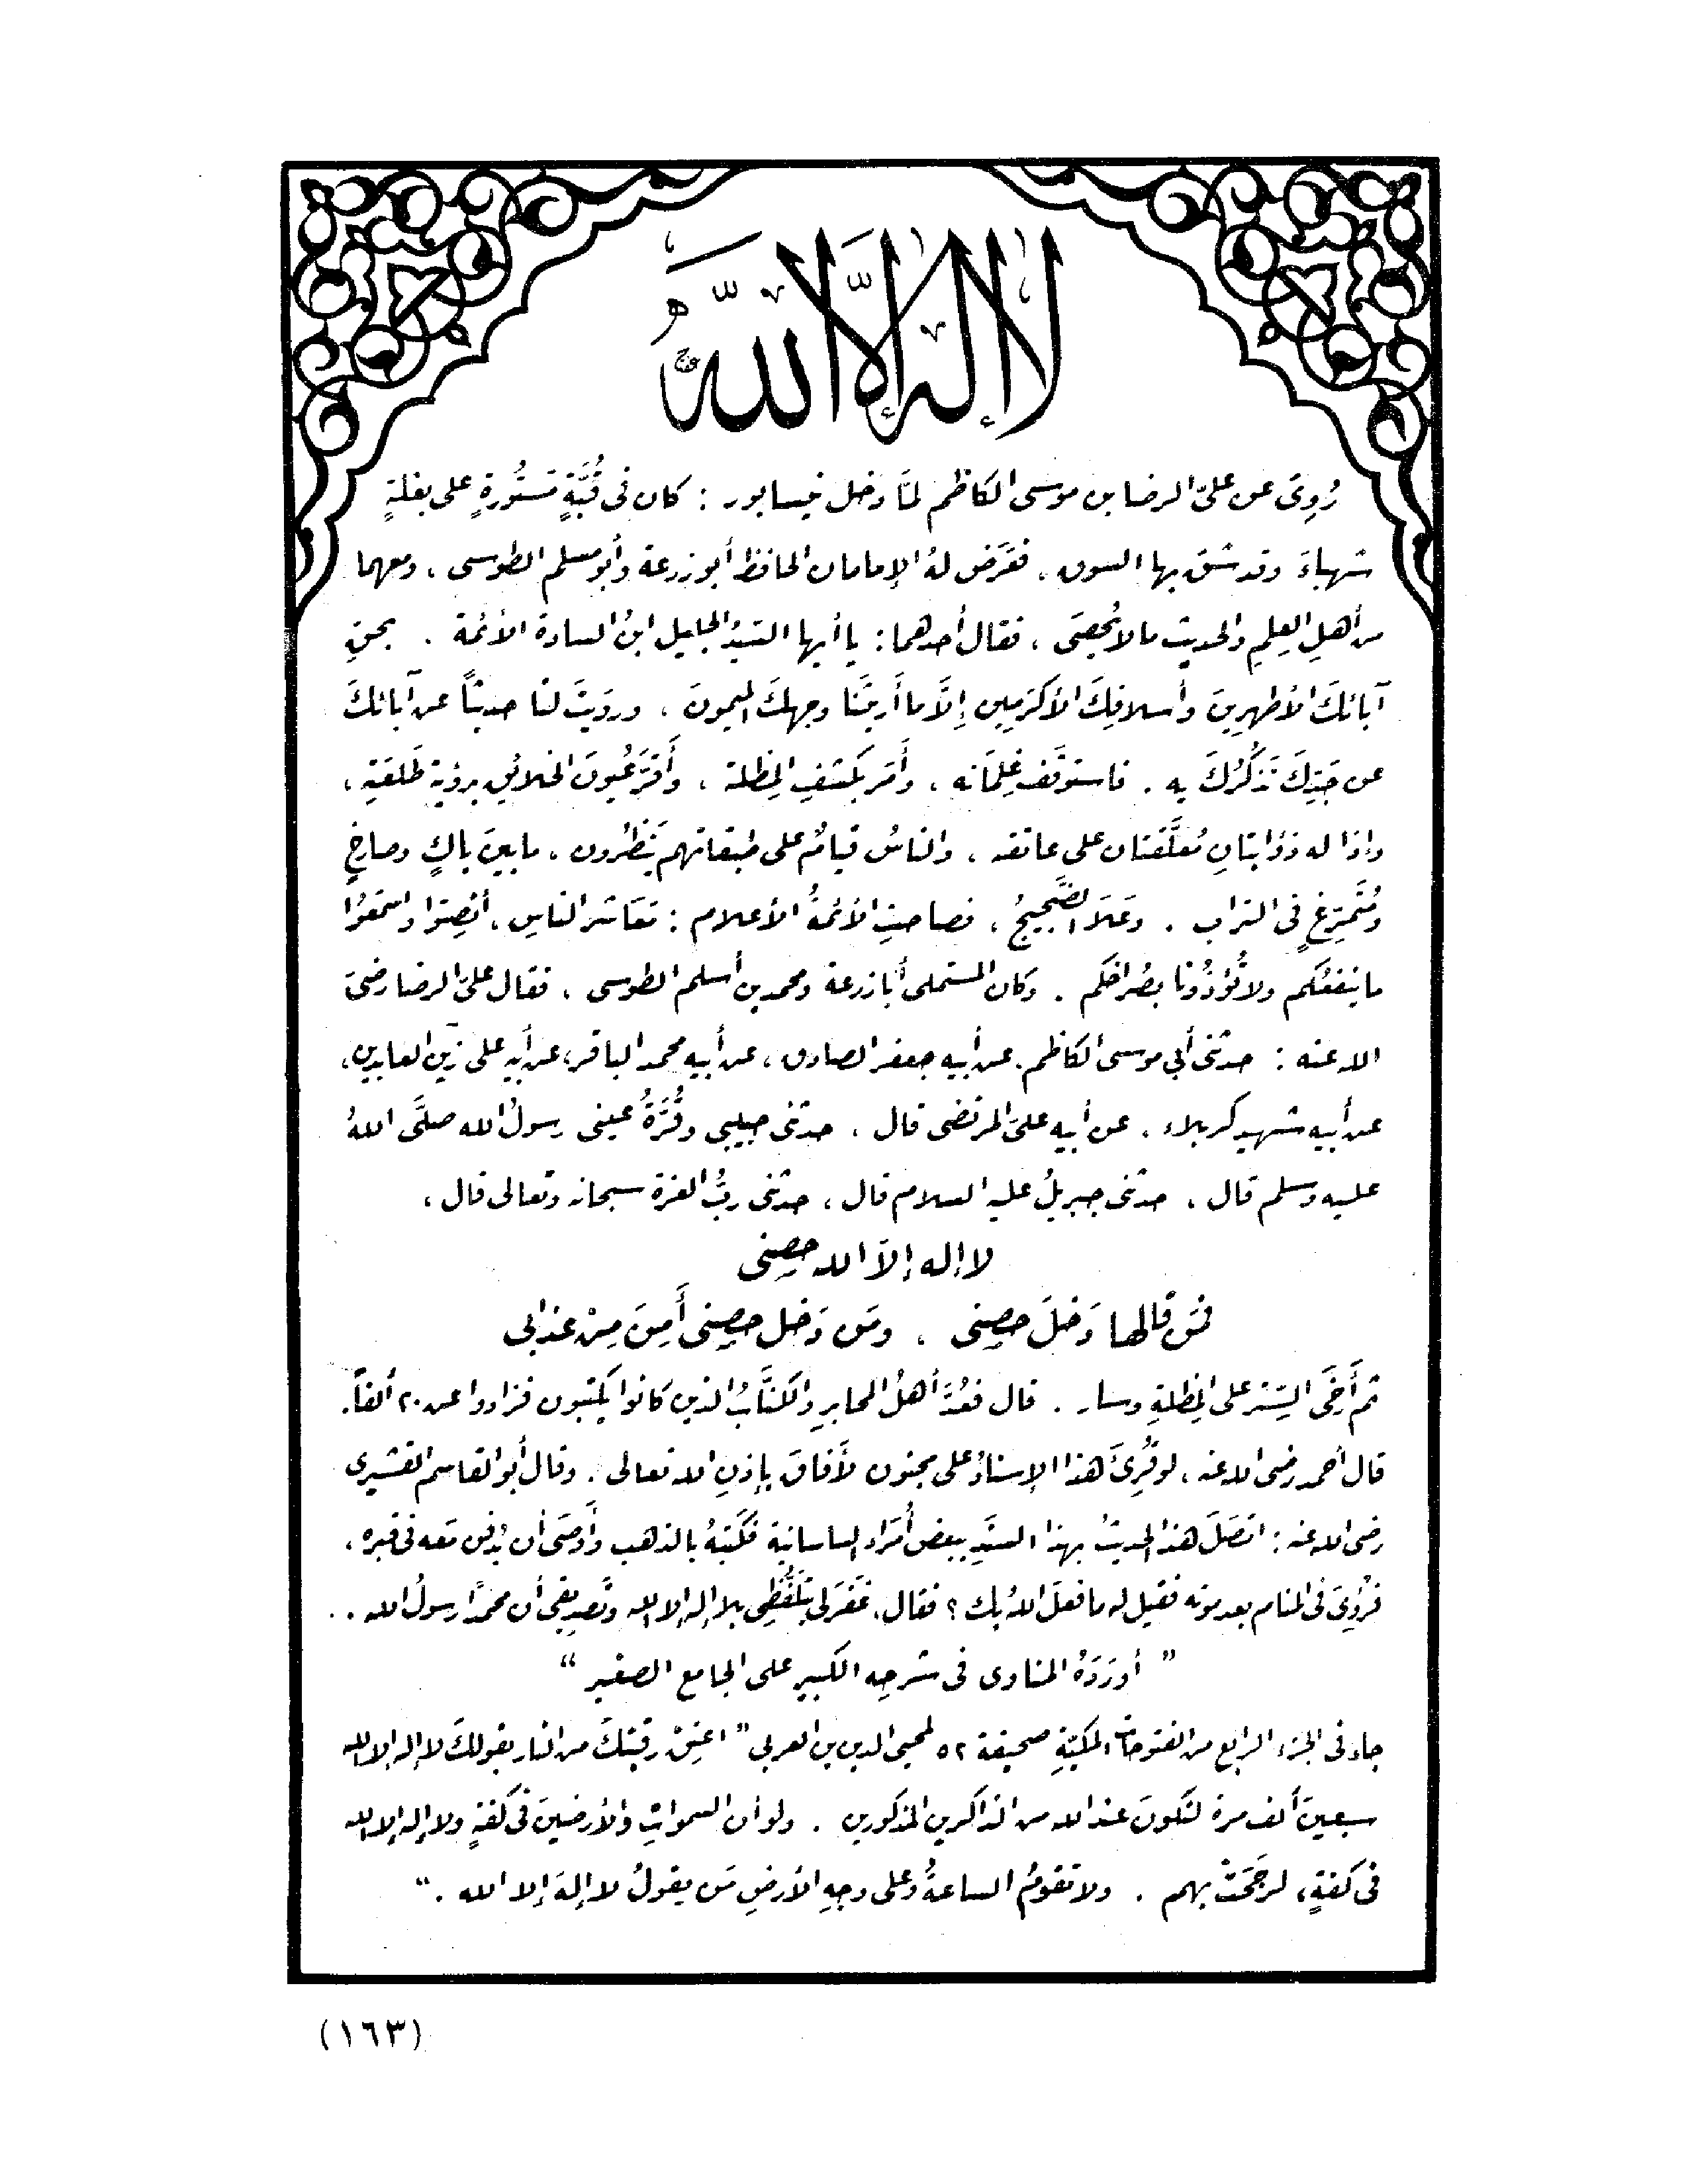 لا إله إلا الله
رُوِىَ عن علىّ الرضا بن موسى الكاظم لمَّا دخل نيسابور : كان فى قُبَّةٍ مَستُورةٍ على بغلةٍ
شهباءَ وقد شق بها السوق ، فعَرَض لهُ الإمامان الحافظ أبو زرعة وأبو مسلم الطوسى ، ومعهما
من أهلِ العِلمِ والحديثِ ما لا يُحصَى ، فقال أحدهما : يا أيها السَّيدُ الجليل ابنُ السادة الأئمة . بحقِ
آبائكَ الأطهرِينَ وأسلافِكَ الأكرَمِين إلَّا ما أَريتَنا وجهكَ الميمونَ ، وروَيتَ لنا حديثاً عن آبائكَ
عن جَدِّكَ نَذكُرُكَ به . فاستوقَف غِلمَانه ، وأَمَر بكشفِ المِظلة ، وأَقَرَّ عُيونَ الخلائقِ برؤية طَلعَتِهِ ،
وإذا له ذؤابتانِ مُعلَّقتان على عاتقه ، والناسُ قيامٌ على طبقاتهم يَنظُرون ، ما بينَ باكٍ وصارخٍ
ومُتَمَرِّغٍ فى التراب . وعَلَا الضَّجيجُ ، فصاحتِ الأئمةُ الأعلام : مَعَاشر الناسِ ، أنصِتوا واسمَعُوا
ما ينفعُكم ولا تُؤذُونا بصُراخكم . وكان المستملى أبا زرعة ومحمد بن أسلم الطوسى ، فقال علىّ الرضا رضىَ
الله عنه : حدثنى أبى موسى الكاظم . عن أبيه جعفر الصادق ، عن أبيه محمد الباقر ، عن أبيه على زين العابدين ،
عن أبيه شهيد كربلاء ، عن أبيه علىّ المرتضى قال ، حدثنى حبيبى وقُرَّةُ عينى رسولُ الله صلَّى اللهُ
عليه وسلم قال ، حدثنى جبريلُ عليه السلام قال ، حدثنى ربُّ العزة سبحانه وتعالى قال ،
لا إله إلاّ الله حِصنِى
فمَن قالها دَخلَ حصنِى ، ومَن دَخل حصنِى أَمِنَ مِنْ عذابى
ثم أَرخَى السِّتر على المِظلةِ وسار . قال فعُدَّ أهلُ المحابرِ والكتَّابُ الذين كانوا يكتبون فزادوا عن ٢٠ ألفاً .
قال أحمد رضى الله عنه ، لو قُرِىَٔ هذا الإسنادُ على مجنون لأَفاقَ بإذنِ الله تعالى . وقال أبو القاسم القشيرى
رضى الله عنه : اتصَلَ هذا الحديثُ بهذا السنَدِ ببعض أُمَرَاء الساسانية فكَتبَهُ بالذهب وأَوصَى أن يُدفن مَعه فى قبره ،
فَرُؤِىَ فى المنام بعد موته فقيل له ما فعلَ اللهُ بك ؟ فقال ، غَفَر لى بتَلَفُّظِى بلا إله إلا الله وتَصدِيقى أن محمدًا رسولُ الله . .
" أورَدَهُ المناوى فى شرحِه الكبيرِ على الجامع الصغير "
جاء فى الجزء الرابع من الفتوحاتِ المكيّةِ صحيفة ٥٢ لمحيى الدين بن العربى " اعتِقْ رقبتكَ من النار بقولكَ لا إله إلا الله
سبعينَ ألف مرة لتكونَ عند الله من الذاكرين المذكورين . ولو أن السمواتِ والأرضينَ فى كفةٍ ولا إله إلا الله
فى كفةٍ ، لرجَحَتْ بهم . ولا تقومُ الساعةُ وعلى وجهِ الأرضِ مَن يقولُ لا إلهَ إلا الله . "
(١٦٣)